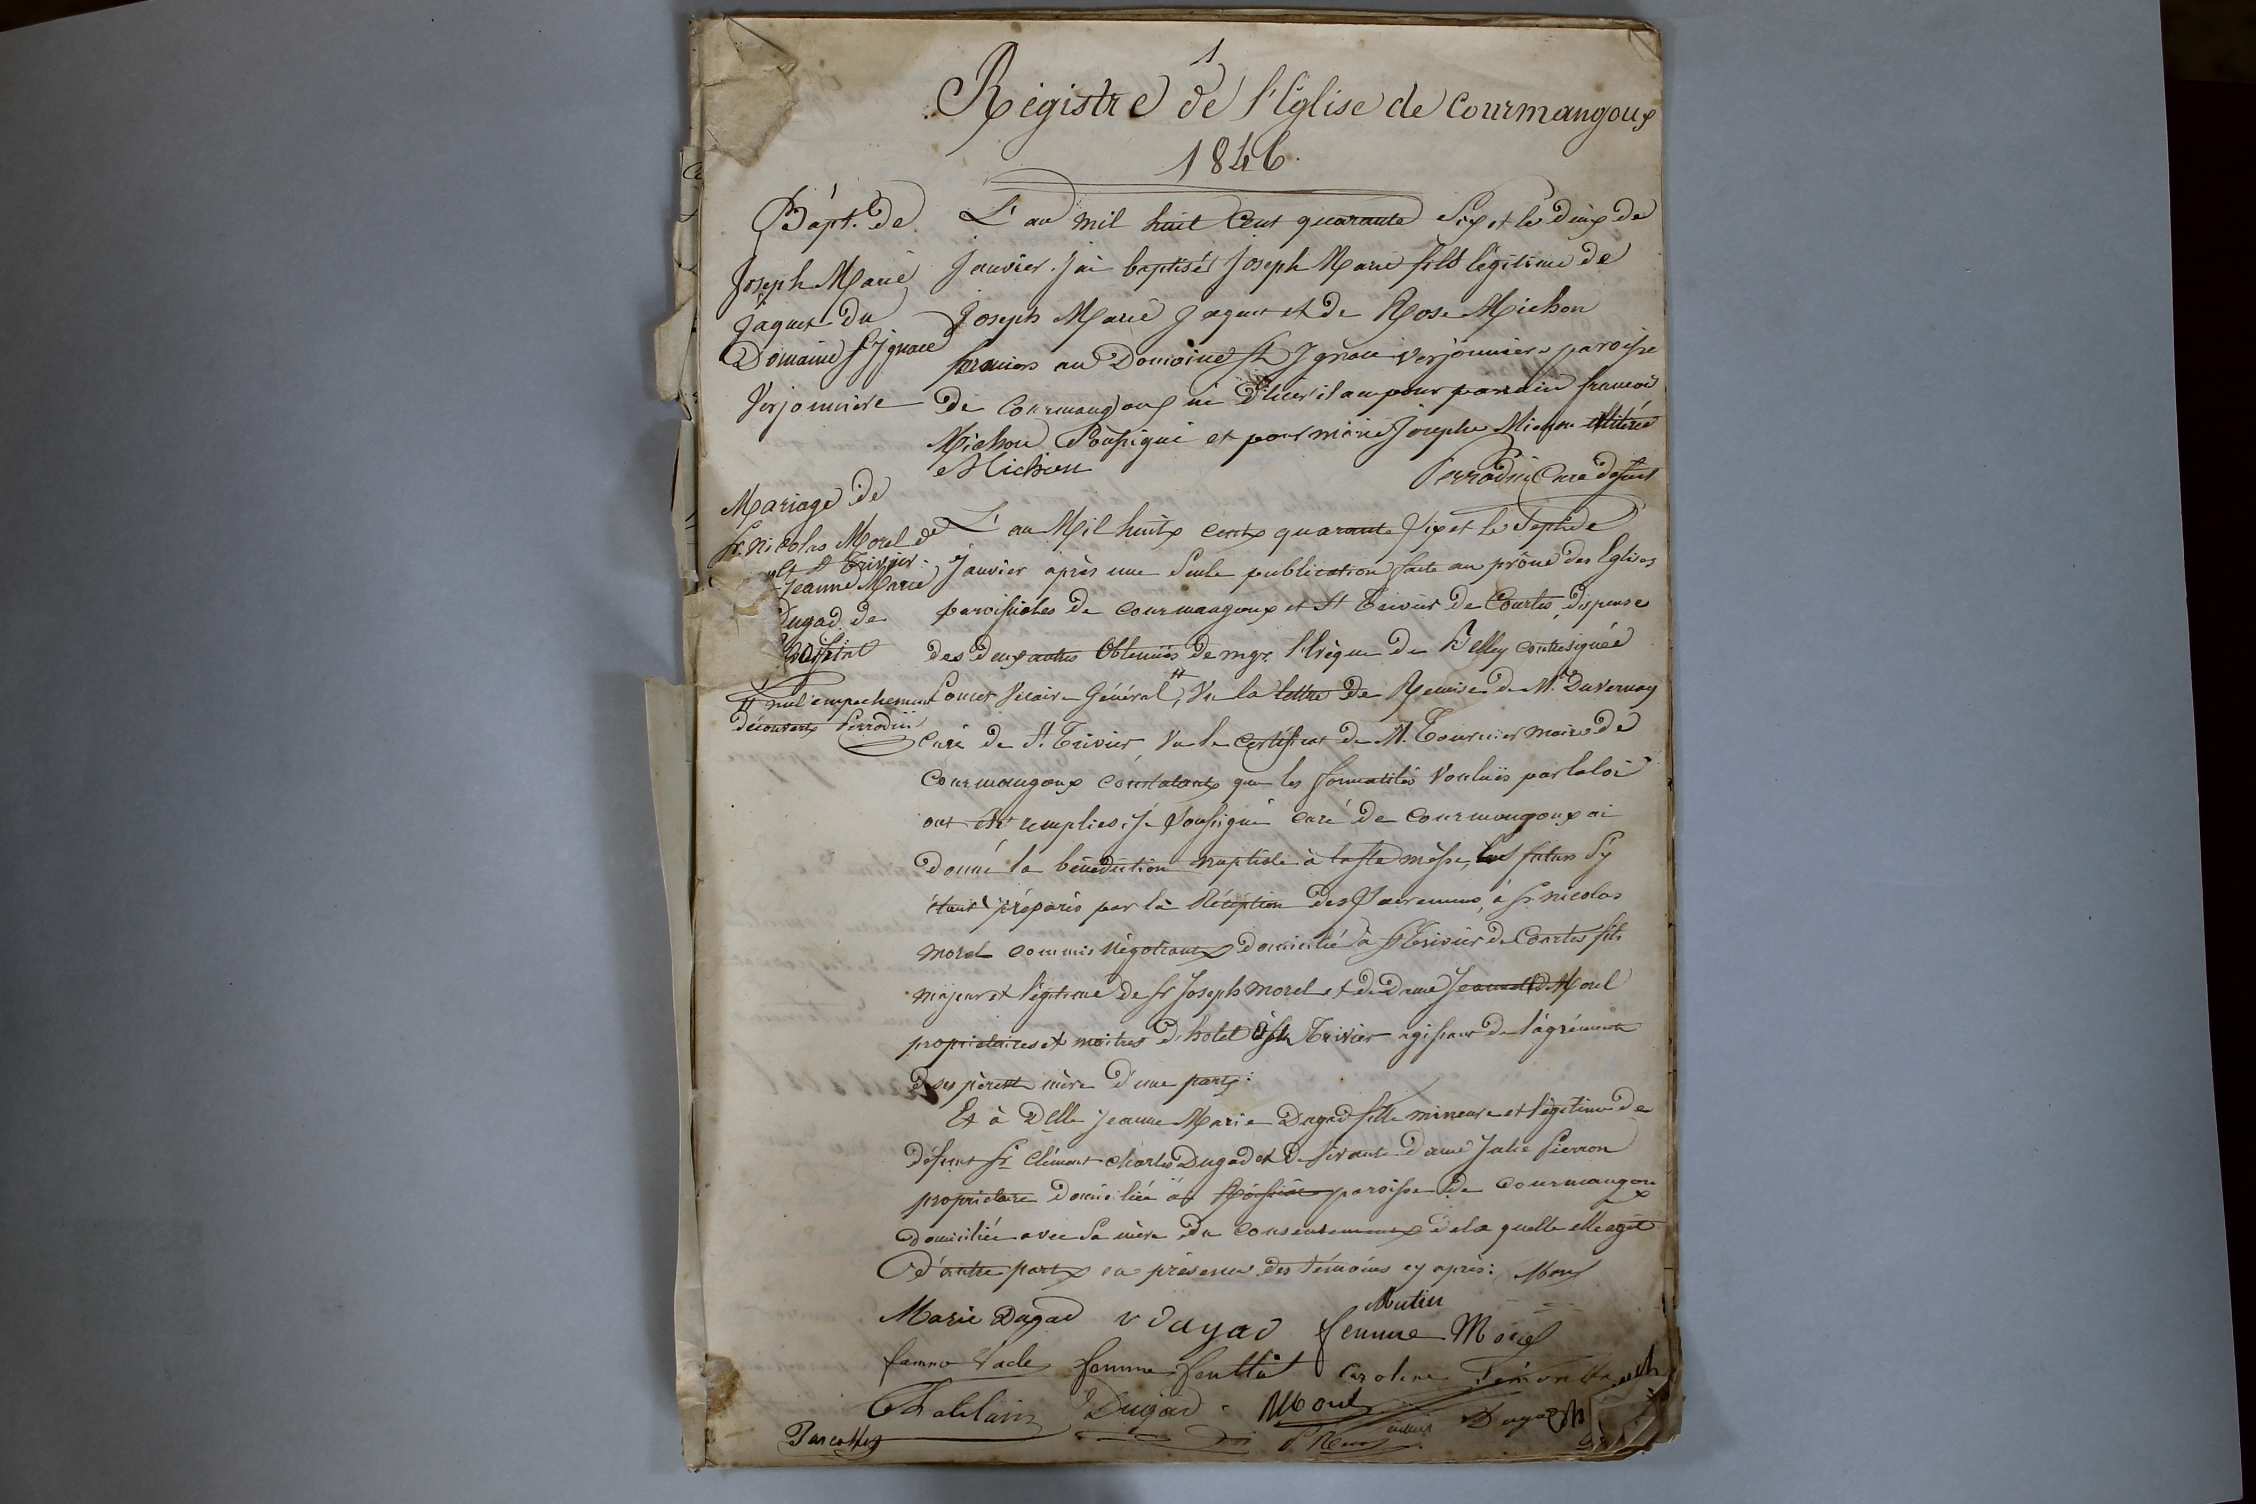 1
Régistre de l'Eglise de Courmangoux
1846.
Bapt. de
Joseph Marie
Jaquet du
Domaine St Ignace
Verjonnière
L'an mil huit cent quarante six et le deux de
Janvier. J'ai baptisé Joseph Marie fils légitime de
Joseph Marie Jaquet et de Rose Michon
fermiers au Domaine St Ignace Verjonniere paroisse
de Courmangoux né d'hier il a eu pour parrain francois
Michon Soussigné et pour Josephe Michon illitérée
Michon
Perrodin Curé desst
Mariage de
Sr. Nicolas Morel de
St Trivier
Jeanne Marie
Dugad de
L'an Mil huit cent quarante six et le Sept de
Janvier après une Seule publication faite au prône des Eglises
paroissiales de Courmangoux et St Trivier de Courtes, dispense
des deux autres obtenues de mgr. l'Evèque de Belley contresignée
# nul empechement
découvert Perrodin
Poncet Vicaire Général #, Vu la lettre de Remise de Mr. Duvernay
curé de St. Trivier Vu le certificat de M. Tournier maire de
Courmangoux constatant que les formalités voulues par la loi
ont été remplies, Je soussigné curé de Courmangoux ai
donné la bénédiction nuptiale à la Ste messe, les futurs s'y
étant préparés par la Réception des Sacremens, à Sr. Nicolas
morel commis négotiant domicilié à St Trivier de Courtes fils
majeur et légitime de Sr Joseph morel et de dame Jeanne Morel
propriétaires et maitres d'hotel à St Trivier agissant de l'agrément
de ses père et mère d'une part:
Et à Delle Jeanne Marie Dugad fille mineure et légitime de
défunt Sr. Clément Charles Dugad et de vivante dame Julie Pierron
propriétaire domiciliée à paroisse de Courmangoux
domiciliée avec sa mère du consentement de la quelle elle agit
d'autre part en présence des témoins cy après: Morel
Marie Dugad v Dugad femme Morel
Mutin
femme femme Caroline
Chatelain Dugad Morel Dugad